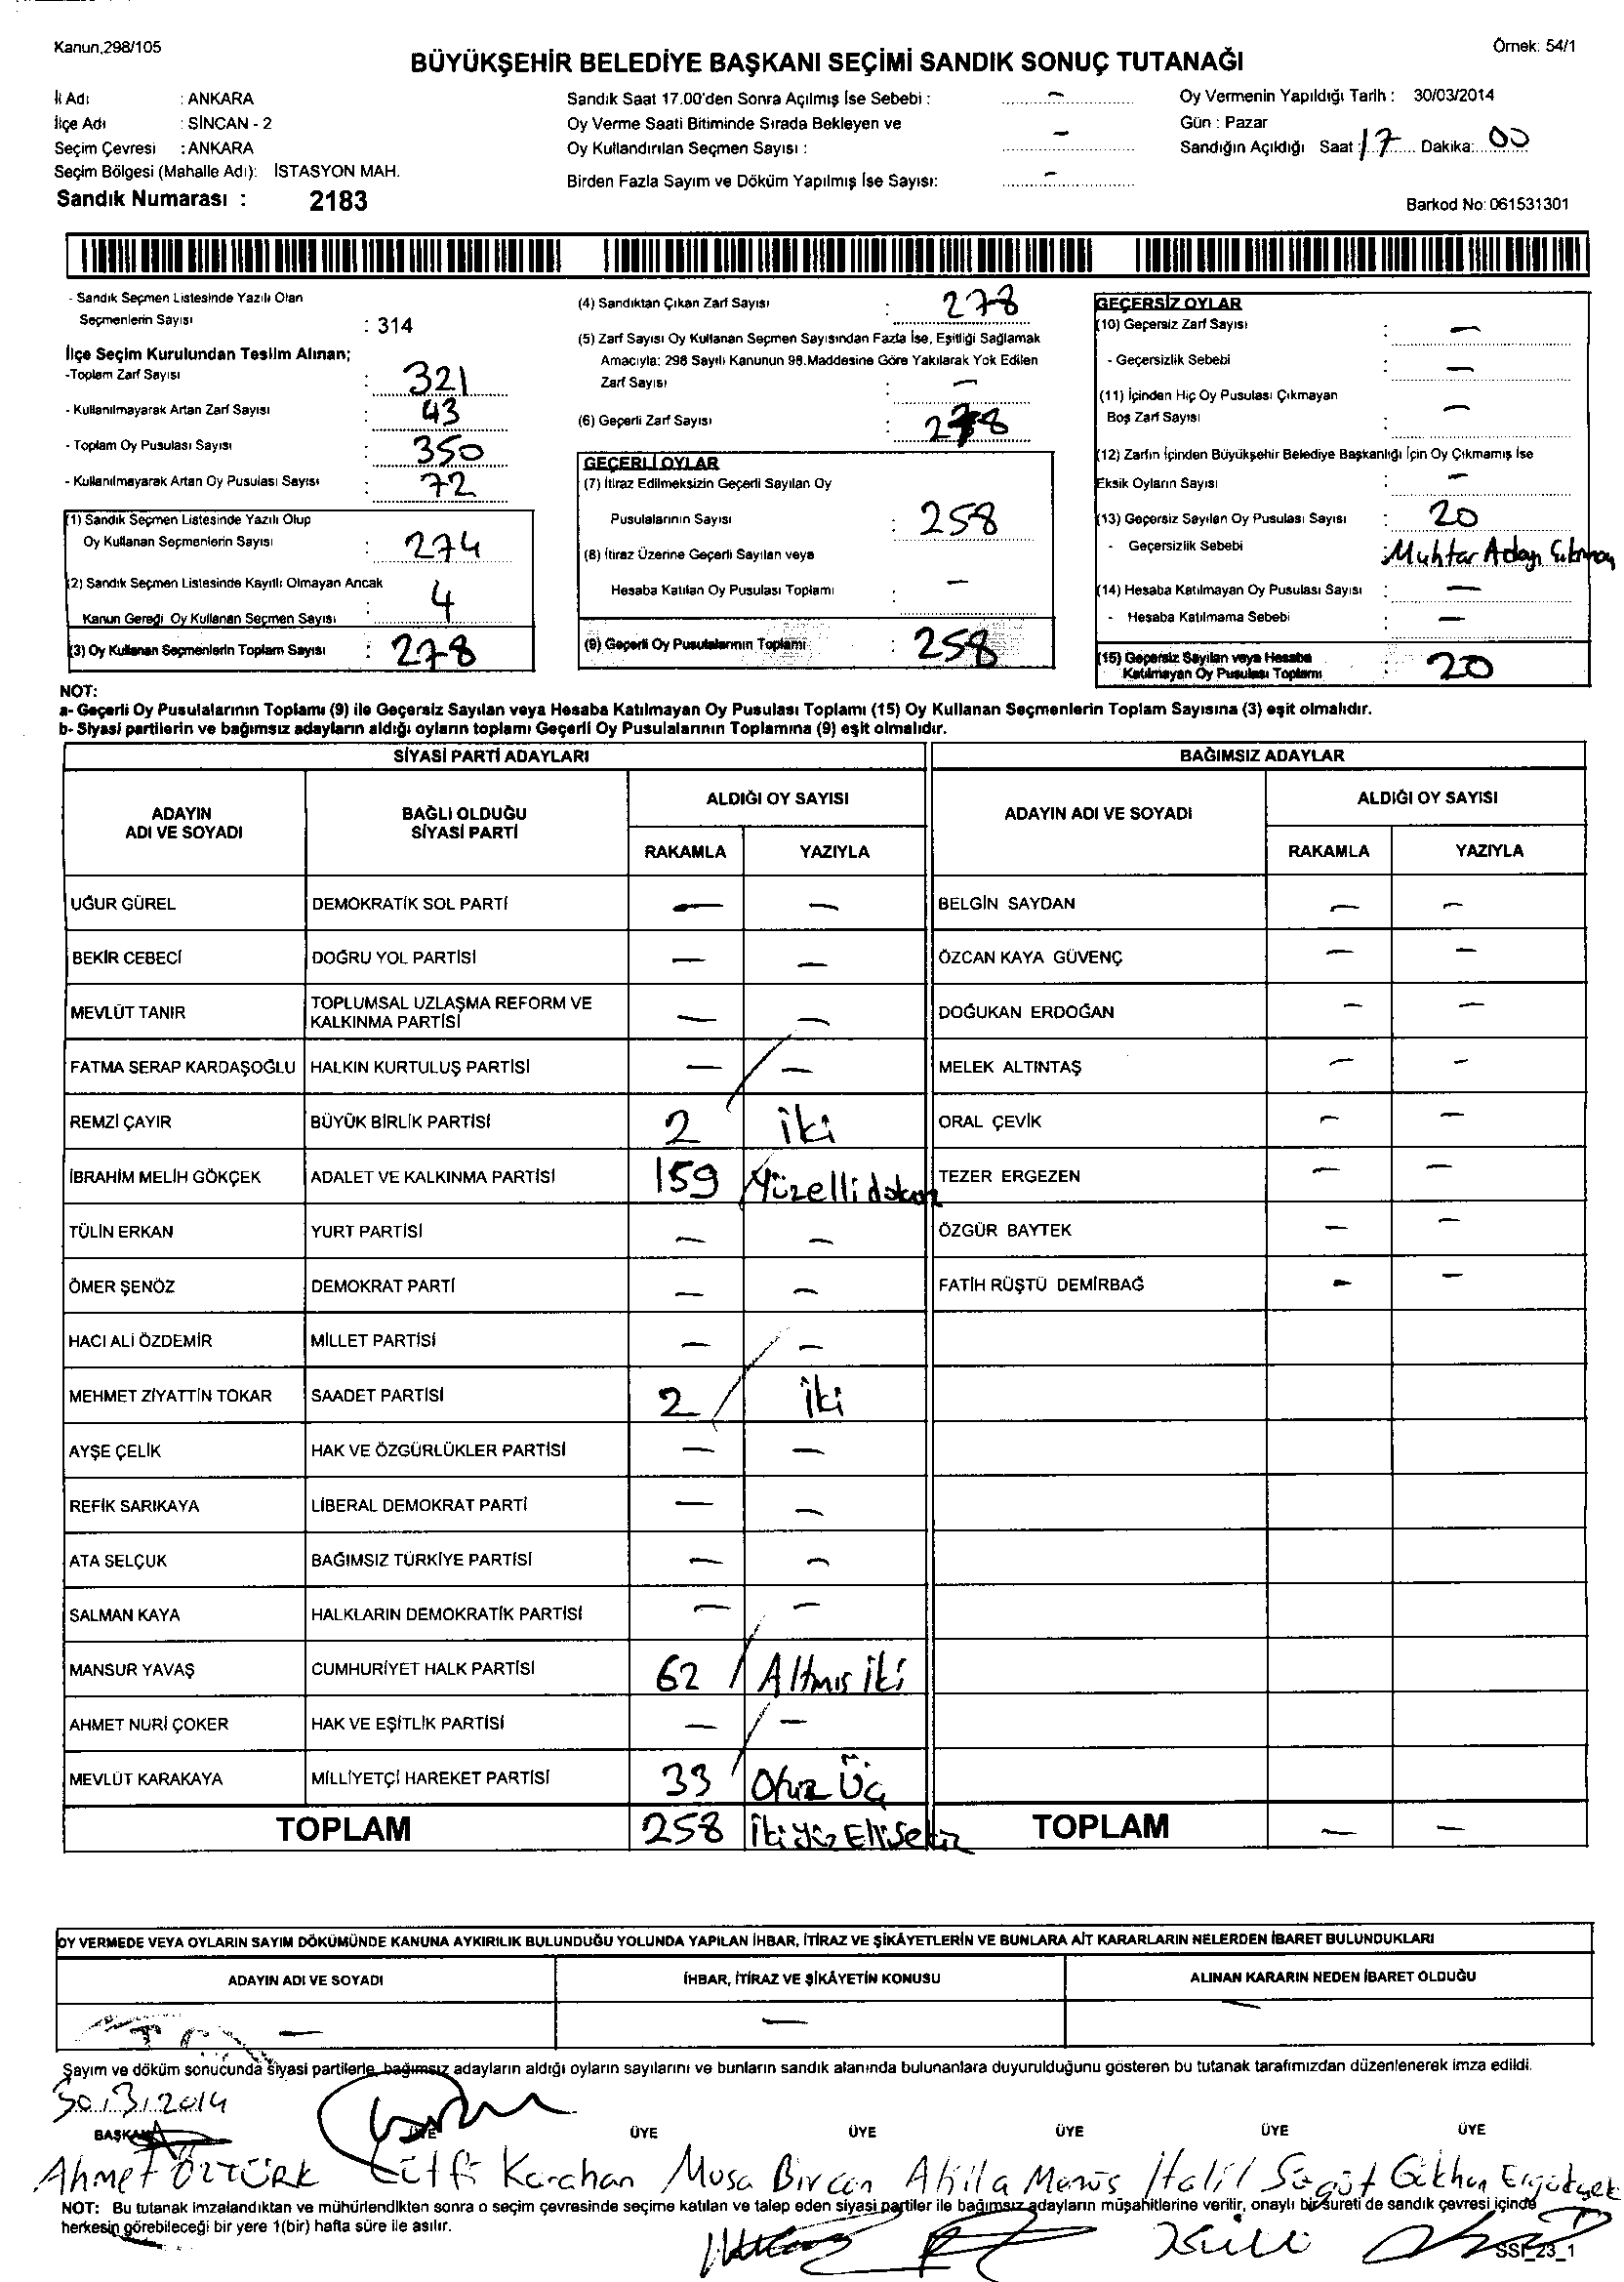 Kanun,298/105
Örnek: 54/1
BÜYÜKŞEHİR BELEDİYE BAŞKANI SEÇİMİ SANDIK SONUÇ TUTANAĞI
İl Adı : ANKARA
İlçe Adı : SİNCAN - 2
Seçim Çevresi : ANKARA
Seçim Bölgesi (Mahalle Adı): İSTASYON MAH.
Sandık Numarası : 2183
Sandık Saat 17.00'den Sonra Açılmış İse Sebebi : –
Oy Verme Saati Bitiminde Sırada Bekleyen ve
Oy Kullandırılan Seçmen Sayısı : –
Birden Fazla Sayım ve Döküm Yapılmış İse Sayısı: –
Oy Vermenin Yapıldığı Tarih : 30/03/2014
Gün : Pazar
Sandığın Açıldığı Saat : 17 Dakika: 00
Barkod No: 061531301
- Sandık Seçmen Listesinde Yazılı Olan
Seçmenlerin Sayısı : 314
İlçe Seçim Kurulundan Teslim Alınan;
-Toplam Zarf Sayısı : 321
- Kullanılmayarak Artan Zarf Sayısı : 43
- Toplam Oy Pusulası Sayısı : 350
- Kullanılmayarak Artan Oy Pusulası Sayısı : 72
(1) Sandık Seçmen Listesinde Yazılı Olup
Oy Kullanan Seçmenlerin Sayısı : 274
(2) Sandık Seçmen Listesinde Kayıtlı Olmayan Ancak
Kanun Gereği Oy Kullanan Seçmen Sayısı : 4
(3) Oy Kullanan Seçmenlerin Toplam Sayısı : 278
(4) Sandıktan Çıkan Zarf Sayısı : 278
(5) Zarf Sayısı Oy Kullanan Seçmen Sayısından Fazla İse, Eşitliği Sağlamak
Amacıyla; 298 Sayılı Kanunun 98.Maddesine Göre Yakılarak Yok Edilen
Zarf Sayısı : –
(6) Geçerli Zarf Sayısı : 278
GEÇERLİ OYLAR
(7) İtiraz Edilmeksizin Geçerli Sayılan Oy
Pusulalarının Sayısı : 258
(8) İtiraz Üzerine Geçerli Sayılan veya
Hesaba Katılan Oy Pusulası Toplamı : –
(9) Geçerli Oy Pusulalarının Toplamı : 258
GEÇERSİZ OYLAR
(10) Geçersiz Zarf Sayısı : –
- Geçersizlik Sebebi : –
(11) İçinden Hiç Oy Pusulası Çıkmayan
Boş Zarf Sayısı : –
(12) Zarfın İçinden Büyükşehir Belediye Başkanlığı İçin Oy Çıkmamış İse
Eksik Oyların Sayısı : –
(13) Geçersiz Sayılan Oy Pusulası Sayısı : 20
- Geçersizlik Sebebi : Muhtar Adayı
(14) Hesaba Katılmayan Oy Pusulası Sayısı : –
- Hesaba Katılmama Sebebi : –
(15) Geçersiz Sayılan veya Hesaba
Katılmayan Oy Pusulası Toplamı : 20
NOT:
a- Geçerli Oy Pusulalarının Toplamı (9) ile Geçersiz Sayılan veya Hesaba Katılmayan Oy Pusulası Toplamı (15) Oy Kullanan Seçmenlerin Toplam Sayısına (3) eşit olmalıdır.
b- Siyasi partilerin ve bağımsız adayların aldığı oyların toplamı Geçerli Oy Pusulalarının Toplamına (9) eşit olmalıdır.
SİYASİ PARTİ ADAYLARI
ADAYIN ADI VE SOYADI | BAĞLI OLDUĞU SİYASİ PARTİ | ALDIĞI OY SAYISI
RAKAMLA | YAZIYLA
UĞUR GÜREL | DEMOKRATİK SOL PARTİ | – | –
BEKİR CEBECİ | DOĞRU YOL PARTİSİ | – | –
MEVLÜT TANIR | TOPLUMSAL UZLAŞMA REFORM VE KALKINMA PARTİSİ | – | –
FATMA SERAP KARDAŞOĞLU | HALKIN KURTULUŞ PARTİSİ | – | –
REMZİ ÇAYIR | BÜYÜK BİRLİK PARTİSİ | 2 | iki
İBRAHİM MELİH GÖKÇEK | ADALET VE KALKINMA PARTİSİ | 159 | Yüzelli dokuz
TÜLİN ERKAN | YURT PARTİSİ | – | –
ÖMER ŞENÖZ | DEMOKRAT PARTİ | – | –
HACI ALİ ÖZDEMİR | MİLLET PARTİSİ | – | –
MEHMET ZİYATTİN TOKAR | SAADET PARTİSİ | 2 | iki
AYŞE ÇELİK | HAK VE ÖZGÜRLÜKLER PARTİSİ | – | –
REFİK SARIKAYA | LİBERAL DEMOKRAT PARTİ | – | –
ATA SELÇUK | BAĞIMSIZ TÜRKİYE PARTİSİ | – | –
SALMAN KAYA | HALKLARIN DEMOKRATİK PARTİSİ | – | –
MANSUR YAVAŞ | CUMHURİYET HALK PARTİSİ | 62 | Altmış iki
AHMET NURİ ÇOKER | HAK VE EŞİTLİK PARTİSİ | – | –
MEVLÜT KARAKAYA | MİLLİYETÇİ HAREKET PARTİSİ | 33 | Otuz Üç
TOPLAM | 258 | İki Yüz Elli Sekiz
BAĞIMSIZ ADAYLAR
ADAYIN ADI VE SOYADI | ALDIĞI OY SAYISI
RAKAMLA | YAZIYLA
BELGİN SAYDAN | – | –
ÖZCAN KAYA GÜVENÇ | – | –
DOĞUKAN ERDOĞAN | – | –
MELEK ALTINTAŞ | – | –
ORAL ÇEVİK | – | –
TEZER ERGEZEN | – | –
ÖZGÜR BAYTEK | – | –
FATİH RÜŞTÜ DEMİRBAĞ | – | –
TOPLAM | – | –
OY VERMEDE VEYA OYLARIN SAYIM DÖKÜMÜNDE KANUNA AYKIRILIK BULUNDUĞU YOLUNDA YAPILAN İHBAR, İTİRAZ VE ŞİKÂYETLERİN VE BUNLARA AİT KARARLARIN NELERDEN İBARET BULUNDUKLARI
ADAYIN ADI VE SOYADI | İHBAR, İTİRAZ VE ŞİKÂYETİN KONUSU | ALINAN KARARIN NEDEN İBARET OLDUĞU
– | – | –
Sayım ve döküm sonucunda siyasi partilerle, bağımsız adayların aldığı oyların sayılarını ve bunların sandık alanında bulunanlara duyurulduğunu gösteren bu tutanak tarafımızdan düzenlenerek imza edildi.
30/3/2014
BAŞKAN ÜYE ÜYE ÜYE ÜYE ÜYE ÜYE
Ahmet ÖZTÜRK Lütfi Karahan Musa Bircan Atila Halil Söğüt Gökhan
NOT: Bu tutanak imzalandıktan ve mühürlendikten sonra o seçim çevresinde seçime katılan ve talep eden siyasi partiler ile bağımsız adayların müşahitlerine verilir, onaylı bir sureti de sandık çevresi içinde
herkesin görebileceği bir yere 1(bir) hafta süre ile asılır.
SSI_23_1